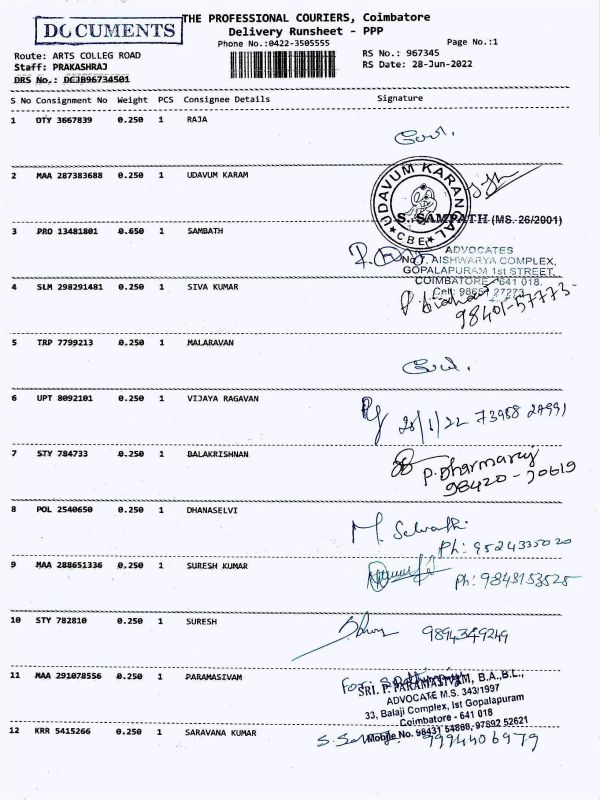 DOCUMENTS
THE PROFESSIONAL COURIERS, Coimbatore
Delivery Runsheet - PPP
Phone No.:0422-3505555
Page No.:1
Route: ARTS COLLEG ROAD
RS No.: 967345
Staff: PRAKASHRAJ
RS Date: 28-Jun-2022
DRS No.: DCJB96734501
S No Consignment No Weight PCS Consignee Details Signature
1 OTY 3667839 0.250 1 RAJA
2 MAA 287383688 0.250 1 UDAVUM KARAM
UDAVUM KARANGAL
★ CBE ★
S. SAMPATH (MS. 26/2001)
3 PRO 13481801 0.650 1 SAMBATH
ADVOCATES
No.7, AISHWARYA COMPLEX,
GOPALAPURAM 1st STREET,
COIMBATORE - 641 018.
Cell: 98657 27273
4 SLM 298291481 0.250 1 SIVA KUMAR
98401-57773-
5 TRP 7799213 0.250 1 MALARAVAN
6 UPT 8092101 0.250 1 VIJAYA RAGAVAN
73988 27991
7 STY 784733 0.250 1 BALAKRISHNAN
P. Dharmaraj
98420-70619
8 POL 2540650 0.250 1 DHANASELVI
M. Selvathi
Ph: 9524335020
9 MAA 288651336 0.250 1 SURESH KUMAR
Ph: 9843153525
10 STY 782810 0.250 1 SURESH
9894349249
11 MAA 291078556 0.250 1 PARAMASIVAM
For:
SRI. P. PARAMASIVAM, B.A.,B.L.,
ADVOCATE M.S. 343/1997
33, Balaji Complex, Ist Gopalapuram
Coimbatore - 641 018
Mobile No. 98431 54868, 97892 52621
12 KRR 5415266 0.250 1 SARAVANA KUMAR
9994406979